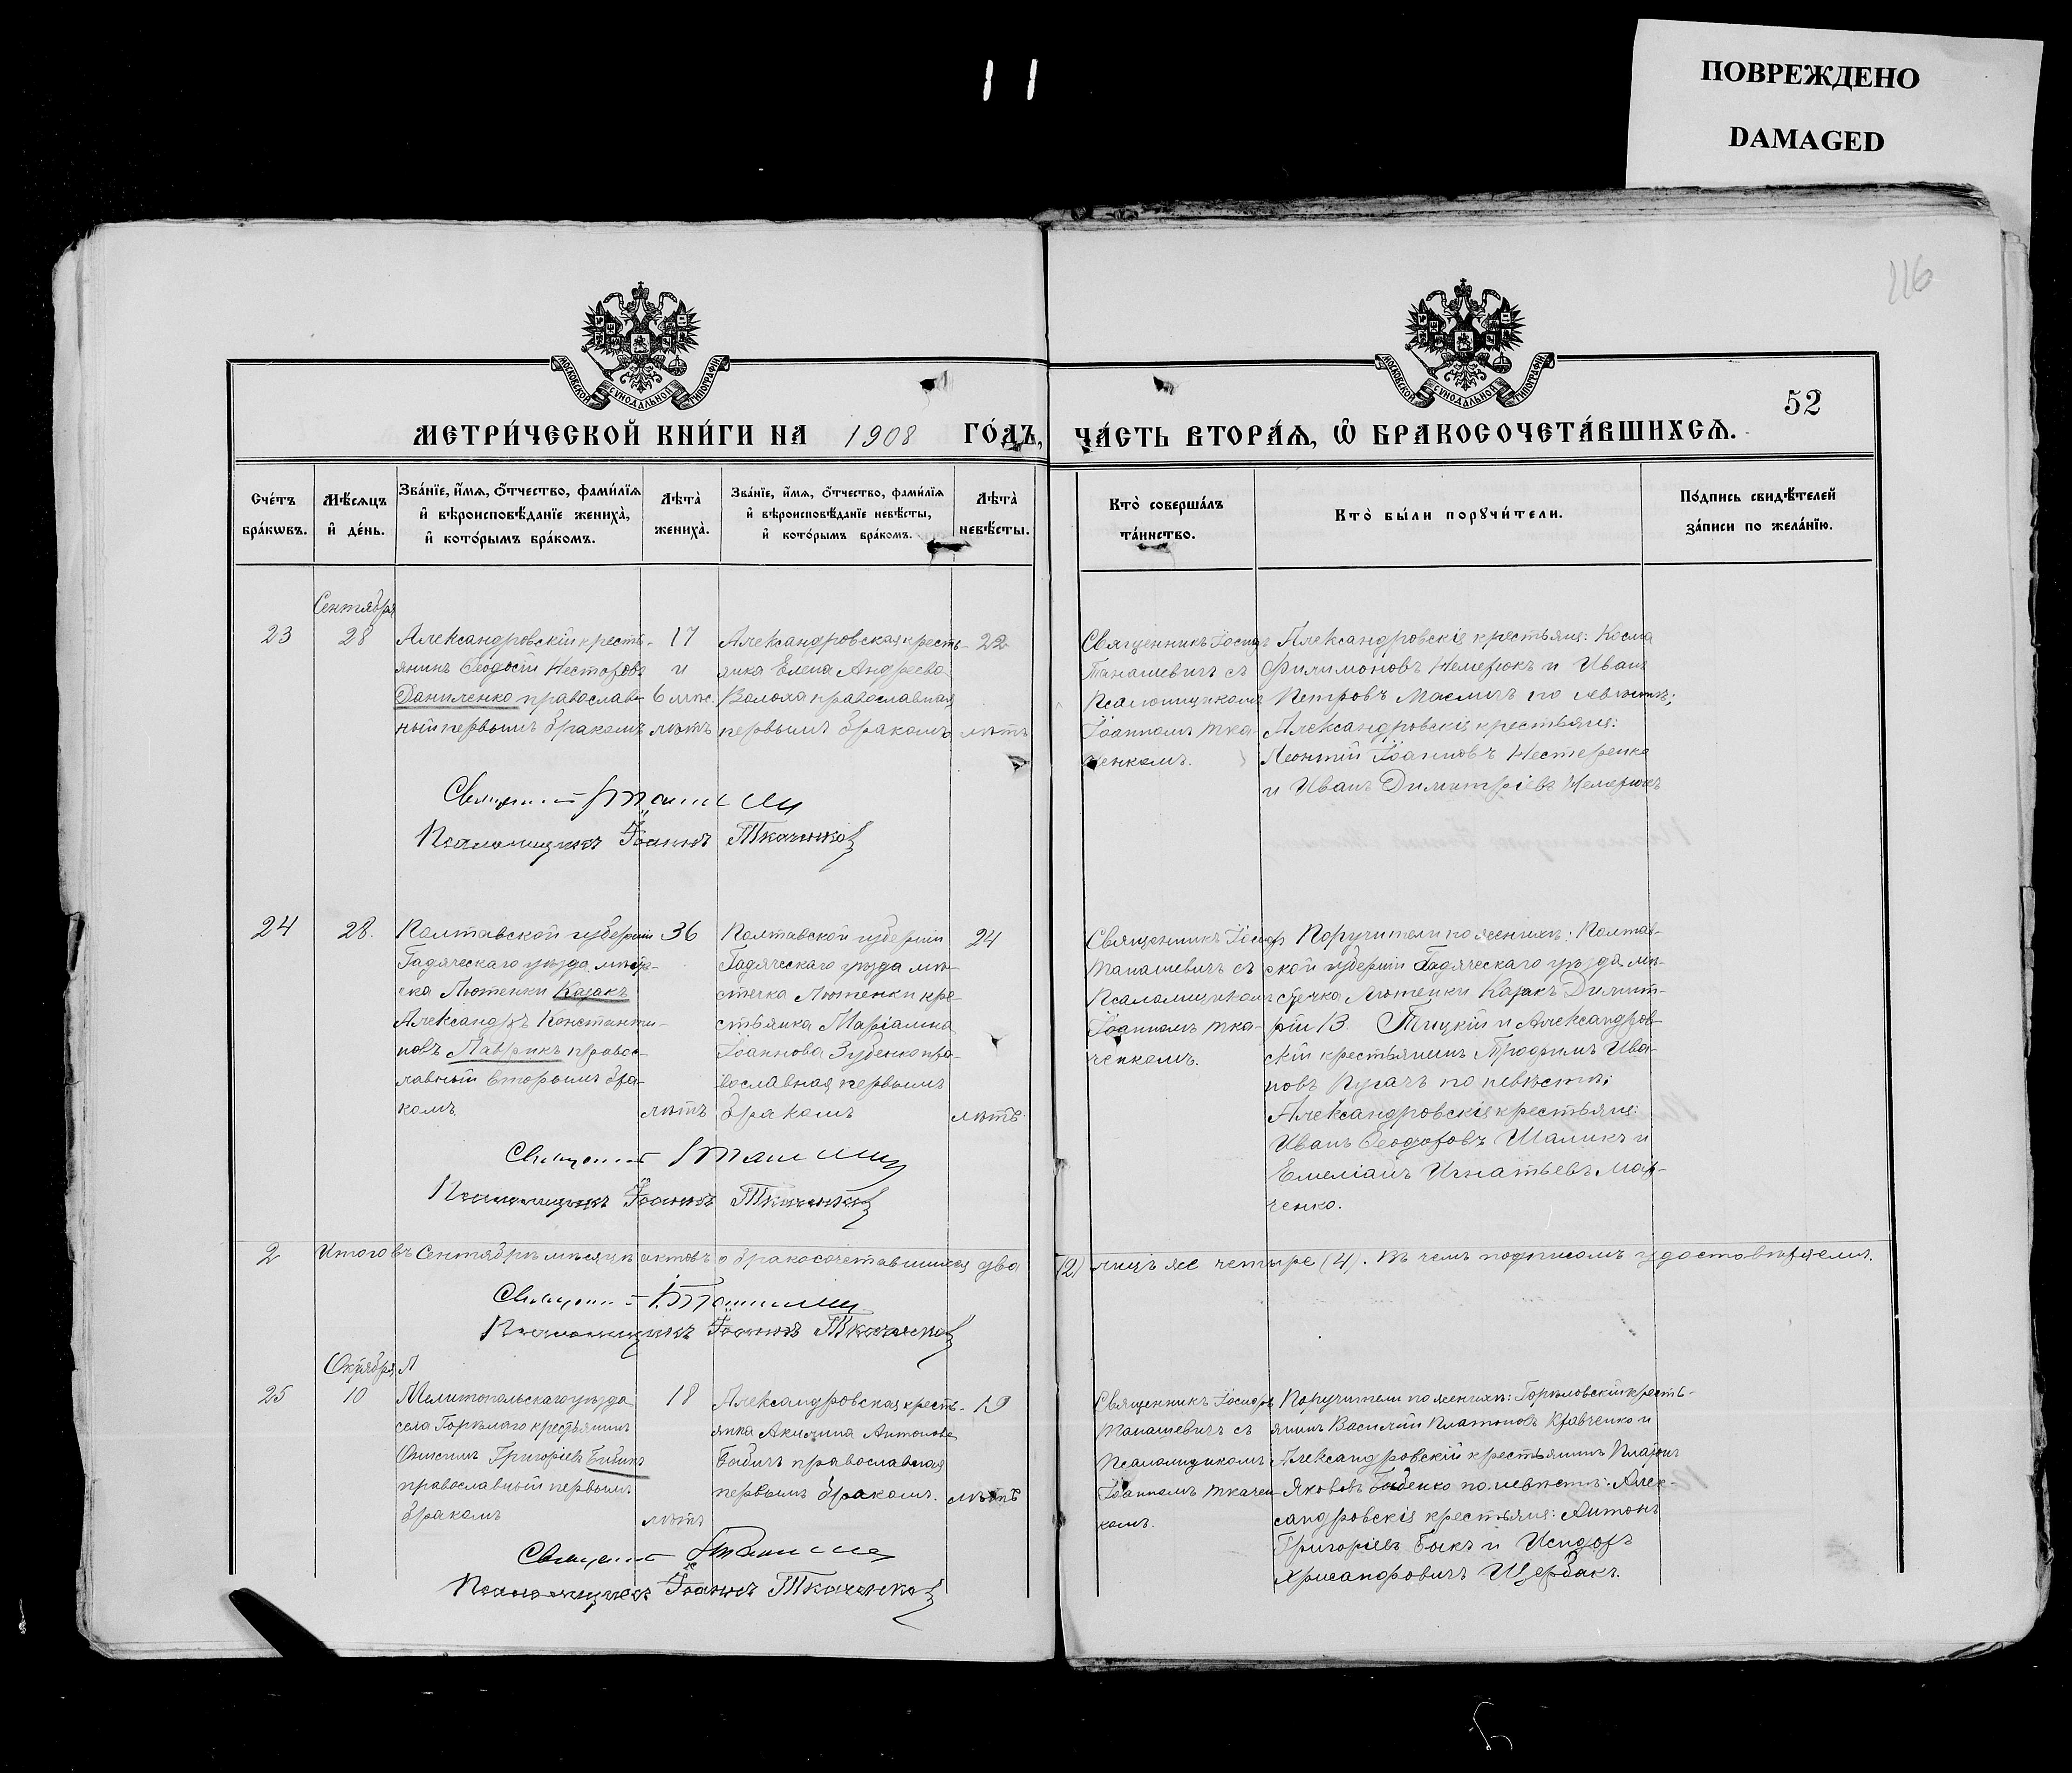 ПОВРЕЖДЕНО
DAMAGED
116
52
МОСКОВСКОЙ СѴНОДАЛЬНОЙ ТИПОГРАФІИ
МОСКОВСКОЙ СѴНОДАЛЬНОЙ ТИПОГРАФІИ
МЕТРИ́ЧЕСКОЙ КНИ́ГИ НА 1908 ГО́ДЪ, ЧА́СТЬ ВТОРА́Я, Ѽ БРАКОСОЧЕТА́ВШИХСЯ.
Сче́тъ бра́кѡвъ.
Мѣ́сяцъ и҆ де́нь.
Зва́нїе, и҆́мя, о҆́тчество, фами́лїя и҆ вѣроисповѣ́данїе жениха̀, и҆ кото́рымъ бра́комъ.
Лѣта̀ жениха̀.
Зва́нїе, и҆́мя, о҆́тчество, фами́лїя и҆ вѣроисповѣ́данїе невѣ́сты, и҆ кото́рымъ бра́комъ.
Лѣта̀ невѣ́сты.
Кто̀ соверша́лъ та́инство.
Кто̀ бы́ли порꙋчи́тели.
По́дпись свидѣ́телей за́писи по жела́нїю.
Сентября
23
28
Александровскій кресть-
янинъ Ѳеодосій Несторовъ
Даниленко православ-
ный первымъ бракомъ
17
и
6 мѣс.
лѣтъ
Александровская кресть-
янка Елена Андреева
Волоха православная
первымъ бракомъ
22
лѣтъ
Священникъ Іосифъ
Танашевичъ съ
Псаломщикомъ
Іоанномъ Тка-
ченкомъ.
Александровскіе крестьяне: Косма
Филимоновъ Немерюкъ и Иванъ
Петровъ Маеличъ по невѣстѣ;
Александровскіе крестьяне:
Леонтій Іоанновъ Нестеренко
и Иванъ Димитріевъ Немерюкъ
Священникъ І Танашевичъ
Псаломщикъ Іоаннъ Ткаченко
24
28.
Полтавской губерніи
Гадяческаго уѣзда мѣстеч-
ска Лютенки Казакъ
Александръ Константи-
новъ Лаврикъ правос-
лавный вторымъ бра-
комъ
36
лѣтъ
Полтавской губерніи
Гадяческаго уѣзда мѣ-
стечка Лютенки кре-
стьянка Маріанна
Іоаннова Зубенко пра-
вославная первымъ
бракомъ
24
лѣтъ
Священникъ Іосифъ
Танашевичъ съ
Псаломщикомъ
Іоанномъ Тка-
ченкомъ.
Поручители по женихѣ: Полтав-
ской губерніи Гадяческаго уѣзда мѣ-
стечка Лютенки Казакъ Димит-
рій В. Тицкій и Александров-
скій крестьянинъ Трофимъ Ива-
новъ Пугачъ по невѣстѣ:
Александровскіе крестьяне:
Иванъ Ѳеодоровъ Шаликъ и
Емеліанъ Игнатьевъ Мар-
ченко.
Священникъ І Танашевичъ
Псаломщикъ Іоаннъ Ткаченко
2 Итого въ Сентябрѣ мѣсяцѣ актовъ о бракосочетавшихся два (2) лицъ же четыре (4). Въ чемъ подписомъ удостовѣряемъ.
Священникъ І Танашевичъ
Псаломщикъ Іоаннъ Ткаченко
Октября
25
10
Мелитопольскаго уѣзда
села Горѣлаго крестьянинъ
Онисимъ Григоріевъ Бибикъ
православный первымъ
бракомъ
18
лѣтъ
Александровская кресть-
янка Акилина Антонова
Бабичъ православная
первымъ бракомъ.
19
лѣтъ
Священникъ Іосифъ
Танашевичъ съ
Псаломщикомъ
Іоанномъ Ткачен-
комъ.
Поручители по женихѣ: Горѣловскій кресть-
янинъ Василій Платоновъ Кравченко и
Александровскій крестьянинъ Платонъ
Яковъ Бабенко по невѣстѣ: Алек-
сандровскіе крестьяне: Антонъ
Григоріевъ Быкъ и Исидоръ
Хрисанфовичъ Щербакъ.
Священникъ І Танашевичъ
Псаломщикъ Іоаннъ Ткаченко